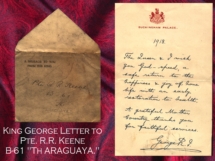 BUCKINGHAM PALACE
1918
The Queen & I wish
you God-speed, a
safe return to the
happiness & joy of home
life with an early
restoration to health.
A grateful Mother
Country thanks you
for faithful services.
George R.I.
KING GEORGE LETTER TO
PTE. R.R. KEENE
B-61 "TH ARAGUAYA."